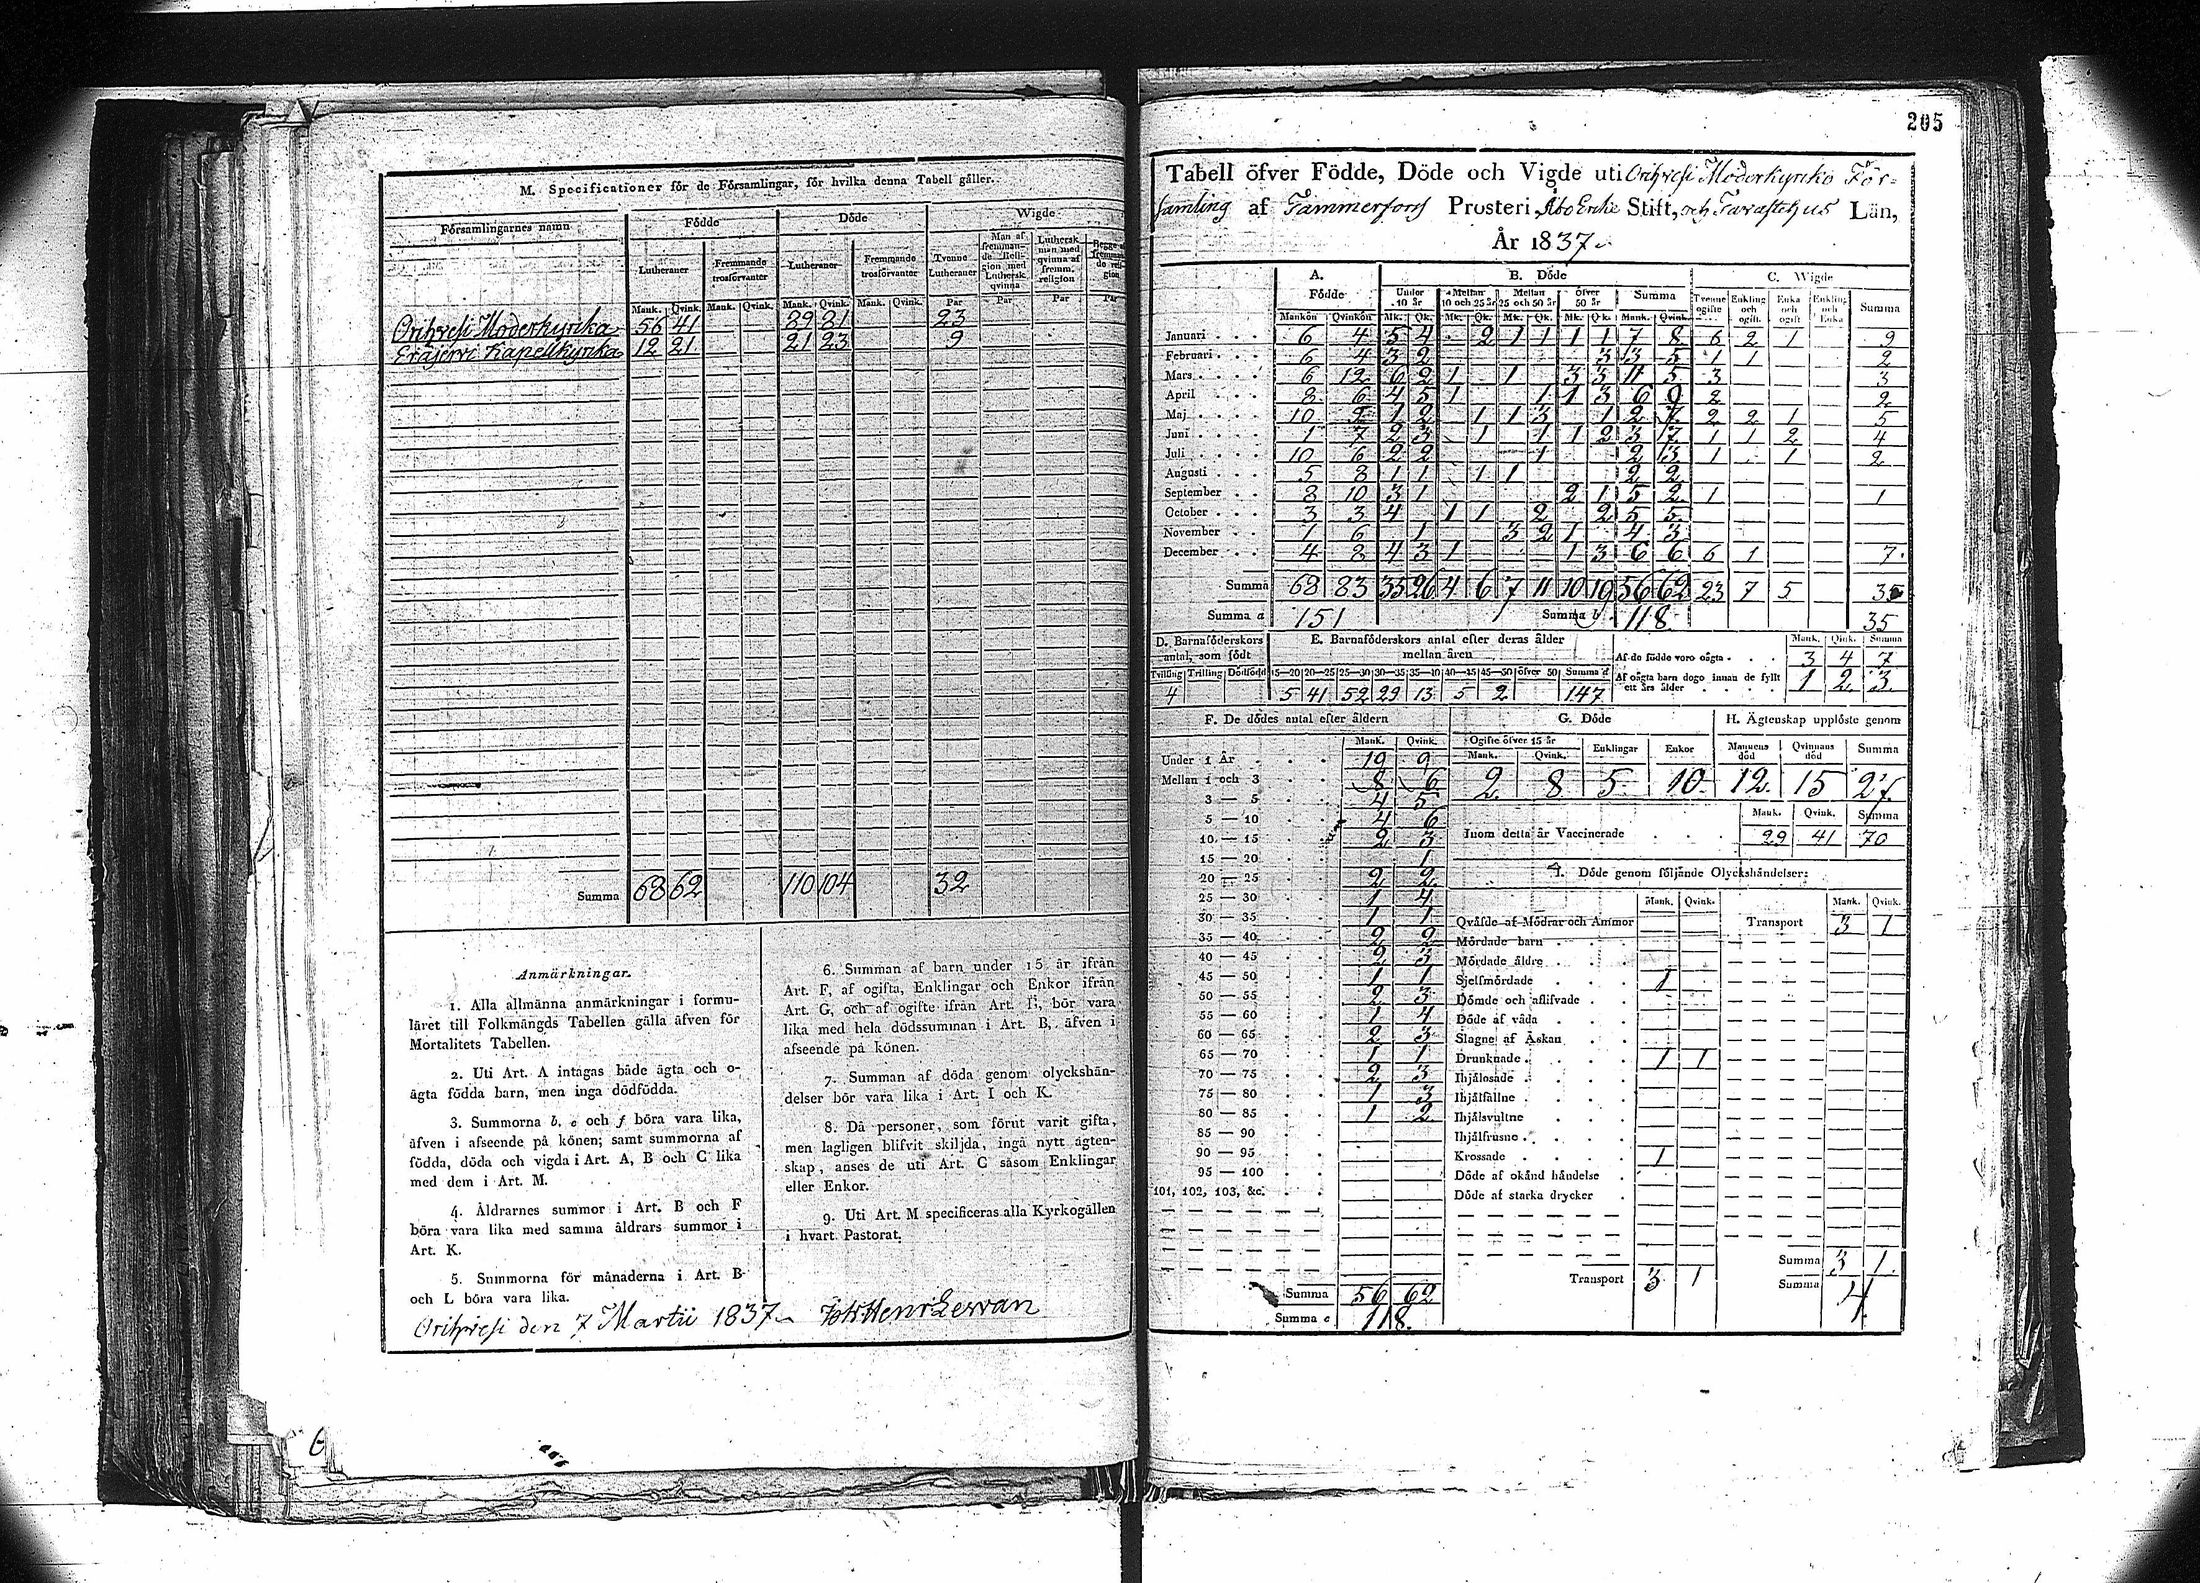 M. Specificationer för de Församlingar, för hvilka denna Tabell gäller.
Församlingarnes namn Födde Döde Wigde
Lutheraner Fremmande trosförvanter Lutheraner Fremmande trosförvanter Tvenne Lutheraner Man af fremmande Religion med Luthersk qvinna Luthersk man med qvinna af fremm. religion
Mank. Qvink. Mank. Qvink. Mank. Qvink. Mank. Qvink. Par Par Par Par
Orihvesi Moderkyrka 56 41 89 81 23
Eräjervi Kapellkyrka 12 21 21 23 9
Summa 68 62 110 104 32
Anmärkningar.
1. Alla allmänna anmärkningar i formu-
läret till Folkmängds Tabellen gälla äfven för
Mortalitets Tabellen.
2. Uti Art. A intagas både ägta och o-
ägta födda barn, men inga dödfödda.
3. Summorna b, c och f böra vara lika,
äfven i afseende på könen; samt summorna af
födda, döda och vigda i Art. A, B och C lika
med dem i Art. M.
4. Åldrarnes summor i Art. B och F
böra vara lika med samma åldrars summor i
Art. K.
5. Summorna för månaderna i Art. B
och L böra vara lika.
6. Summan af barn under 15 år ifrån
Art. F, af ogifta, Enklingar och Enkor ifrån
Art. G, och af ogifte ifrån Art. H, bör vara
lika med hela dödssumman i Art. B, äfven i
afseende på könen.
7. Summan af döda genom olyckshän-
delser bör vara lika i Art. I och K.
8. Då personer, som förut varit gifta,
men lagligen blifvit skiljda, ingå nytt ägten-
skap, anses de uti Art. C såsom Enklingar
eller Enkor.
9. Uti Art. M specificeras alla Kyrkogällen
i hvart Pastorat.
Orihvesi den 7 Martii 1837
205
Tabell öfver Födde, Döde och Vigde uti Orihvesi Moderkyrko För-
samling af Tammerfors Prosteri, Åbo Erke Stift, och Tavastehus Län,
År 1837.
A. Födde B. Döde C. Wigde
Under 10 år Mellan 10 och 25 år Mellan 25 och 50 år Öfver 50 år Summa Tvenne ogifte Enkling och ogift. Enka och ogift Enkling och Enka Summa
Mankön Qvinkön Mk. Qk. Mk. Qk. Mk. Qk. Mk. Qk. Mank. Qvink.
Januari 6 4 5 4 2 1 1 1 1 7 8 6 2 1 9
Februari 6 4 3 2 3 3 5 1 1 2
Mars 6 12 6 2 1 1 3 3 11 5 3 3
April 8 6 4 5 1 1 1 3 6 9 2 2
Maj 10 9 1 2 1 1 3 1 2 7 2 2 1 5
Juni 1 7 2 3 1 1 1 2 3 17 1 1 2 4
Juli 10 6 2 2 1 2 13 1 1 2
Augusti 5 8 1 1 1 1 2 2
September 8 10 3 1 2 1 5 2 1 1
October 3 3 4 1 1 2 2 5 5
November 1 6 1 3 2 1 4 3
December 4 8 4 3 1 1 3 6 6 6 1 7
Summa 68 83 35 26 4 6 7 11 10 19 56 62 23 7 5 35
Summa a 151 Summa b 118 35
D. Barnaföderskors antal, som födt
E. Barnaföderskors antal efter deras ålder mellan åren
Tvilling Trilling Dödfödd 15—20 20—25 25—30 30—35 35—40 40—45 45—50 öfver 50 Summa d
4 5 41 52 29 13 5 2 147
Mank. Qink. Summa
Af de födde voro oägta 3 4 7
Af oägta barn dogo innan de fyllt ett års ålder 1 2 3
F. De dödes antal efter åldern
Mank. Qvink.
Under 1 År 19 9
Mellan 1 och 3 8 6
3 — 5 4 5
5 — 10 4 6
10 — 15 2 3
15 — 20 1
20 — 25 2 2
25 — 30 1 4
30 — 35 1 1
35 — 40 2 2
40 — 45 2 3
45 — 50 1 1
50 — 55 2 3
55 — 60 1 4
60 — 65 2 3
65 — 70 1 1
70 — 75 2 3
75 — 80 1 3
80 — 85 1 2
85 — 90
90 — 95
95 — 100
101, 102, 103, &c.
Summa 56 62
Summa c 118.
G. Döde
Ogifte öfver 15 år Enklingar Enkor
Mank. Qvink.
2 8 5 10
H. Ägtenskap upplöste genom
Mannens död Qvinnans död Summa
12 15 27
Mank. Qvink. Summa
Inom detta år Vaccinerade 29 41 70
I. Döde genom följande Olyckshändelser:
Mank. Qvink. Mank. Qvink.
Qväfde af Mödrar och Ammor Transport 3 1
Mördade barn
Mördade äldre
Sjelfmördade 1
Dömde och aflifvade
Döde af våda
Slagne af Åskan
Drunknade 1 1
Ihjälosade
Ihjälfallne
Ihjälsvultne
Ihjälfrusne
Krossade 1
Döde af okänd händelse
Döde af starka drycker
Summa 3 1
Transport 3 1 Summa 4